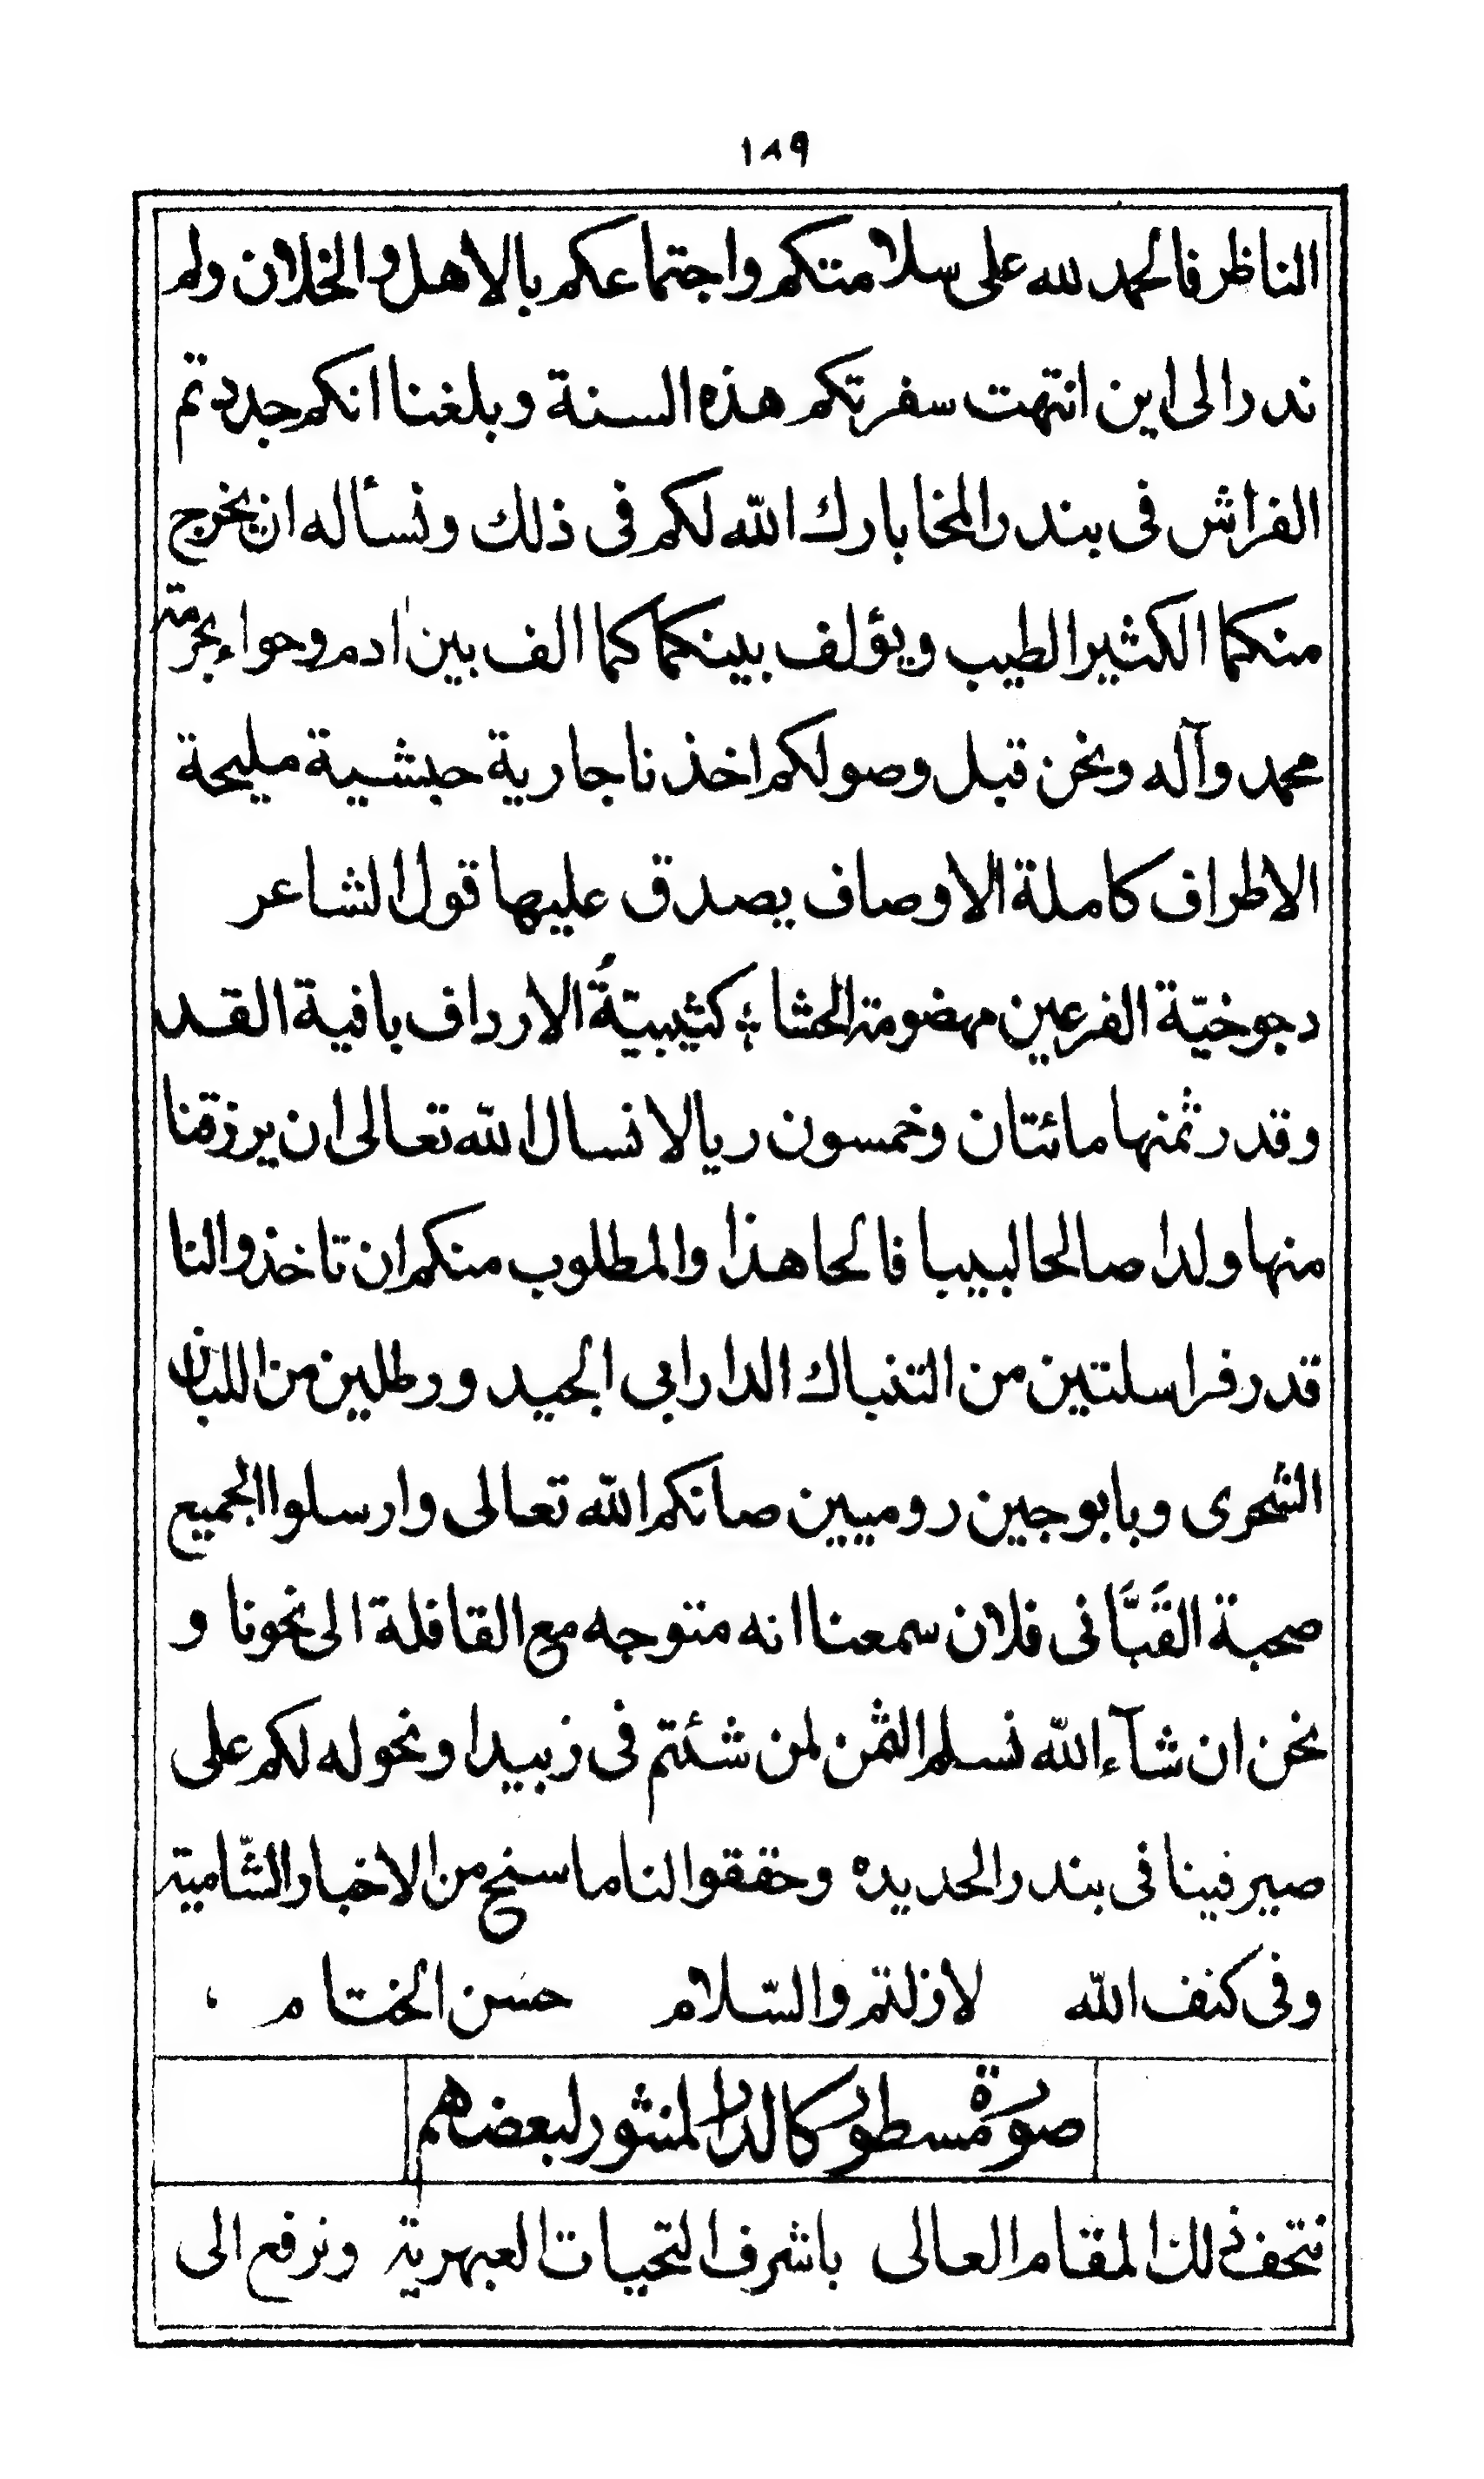 ١٨٩
الناظر فالحمد لله على سلامتكم واجتماعكم بالاهل والخلان ولم
ندر الى اين انتهت سفرتكم هذه السنة وبلغنا انكم جددتم
الفراش فى بندر المخا بارك الله لكم فى ذلك ونسأله ان يخرج
منكما الكثير الطيب ويؤلف بينكما كما الف بين ادم وحواء بحرمة
محمد وآله ونحن قبل وصولكم اخذنا جارية حبشية مليحة
الاطراف كاملة الاوصاف يصدق عليها قول الشاعر
دجوخيّة الفرعين مهضومة الحشا ؛ كثيبيّةُ الارداف بافية القد
وقدر ثمنها مائتان وخمسون ريالا نسال الله تعالى ان يرزقنا
منها ولدا صالحا لبيبا فالحا هذا والمطلوب منكم ان تاخذوا لنا
قدر فراسلتين من التنباك الدارابى الجيد ورطلين من اللبان
الشحرى وبابوجين روميين صانكم الله تعالى وارسلوا الجميع
صحبة القَبَّانى فلان سمعنا انه متوجه مع القافلة الى نحونا و
نحن ان شآء الله نسلم الثمن لمن شئتم فى زبيد او نحوله لكم على
صيرفينا فى بندر الحديده وحققوا لنا ما سنح من الاخبار الشّامية
وفى كنف الله لازلتم والسّلام حسن الختام ،
صورة مسطور كالدر المنثور لبعضهم
نتحف ذلك المقام العالى باشرف التحيات العبهرية ونرفع الى